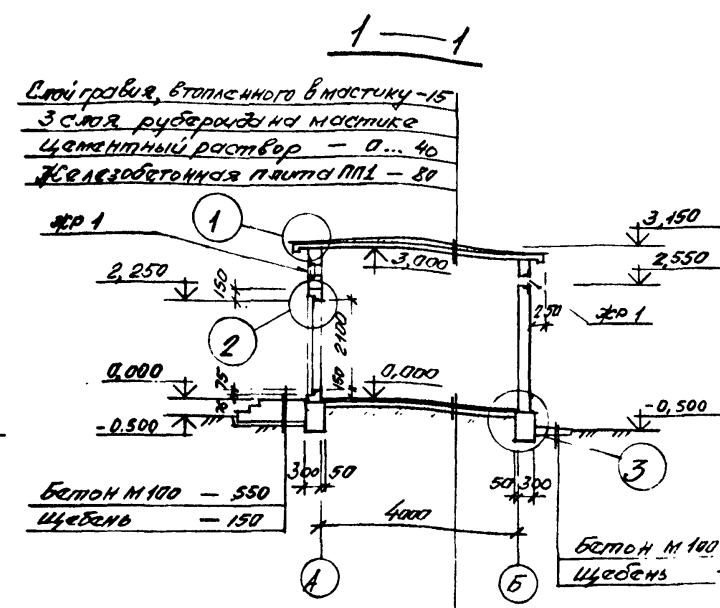 1 — 1
Слой гравия, втопленного в мастику -15
3 слоя рубероида на мастике
Цементный раствор — 0... 40
Железобетонная плита ПП1 — 80
ЖР 1
1
3,150
2,250
150
3,000
2,550
2
2100
250
ЖР 1
0,000
75
150
0,000
-0.500
-0,500
300
50
50
300
3
Бетон М 100 — 550
Щебень — 150
4000
Бетон М 100
Щебень
А
Б